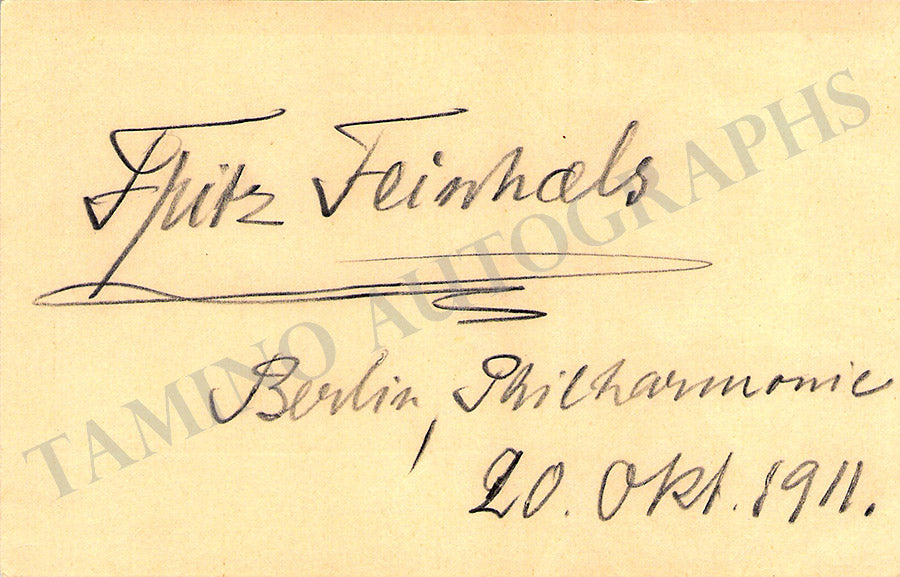 Fritz Feinhals
Berlin, Philharmonie
20. Okt. 1911.
TAMINO AUTOGRAPHS